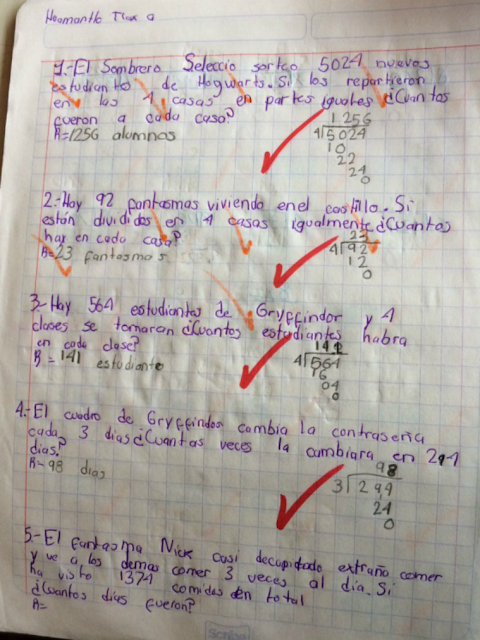 Huamantla Tlax a
1.-El Sombrero Seleccio sorteo 5024 nuevos
estudiantes de Hogwarts. Si los repartieron
en las 4 casas en partes iguales ¿Cuantos
fueron a cada casa?
R=1256 alumnos
1256
4√5024
10
22
24
0
2.-Hay 92 fantasmas viviendo en el castillo. Si
están divididos en 4 casas igualmente ¿Cuantos
hay en cada casa?
R=23 fantasmas
23
4√92
12
0
3.-Hay 564 estudiantes de Gryffindor y 4
clases se tomaran ¿Cuantos estudiantes habra
en cada clase?
R=141 estudiante
141
4√564
16
04
0
4.-El cuadro de Gryffindor cambia la contraseña
cada 3 dias ¿Cuantas veces la cambiara en 294
dias?
R=98 dias
98
3√294
24
0
5.-El fantasma Nick casi decapitado extraño comer
y ve a los demas comer 3 veces al dia. Si
ha visto 1374 comidas en total
¿Cuantos dias fueron?
R=
Scribe